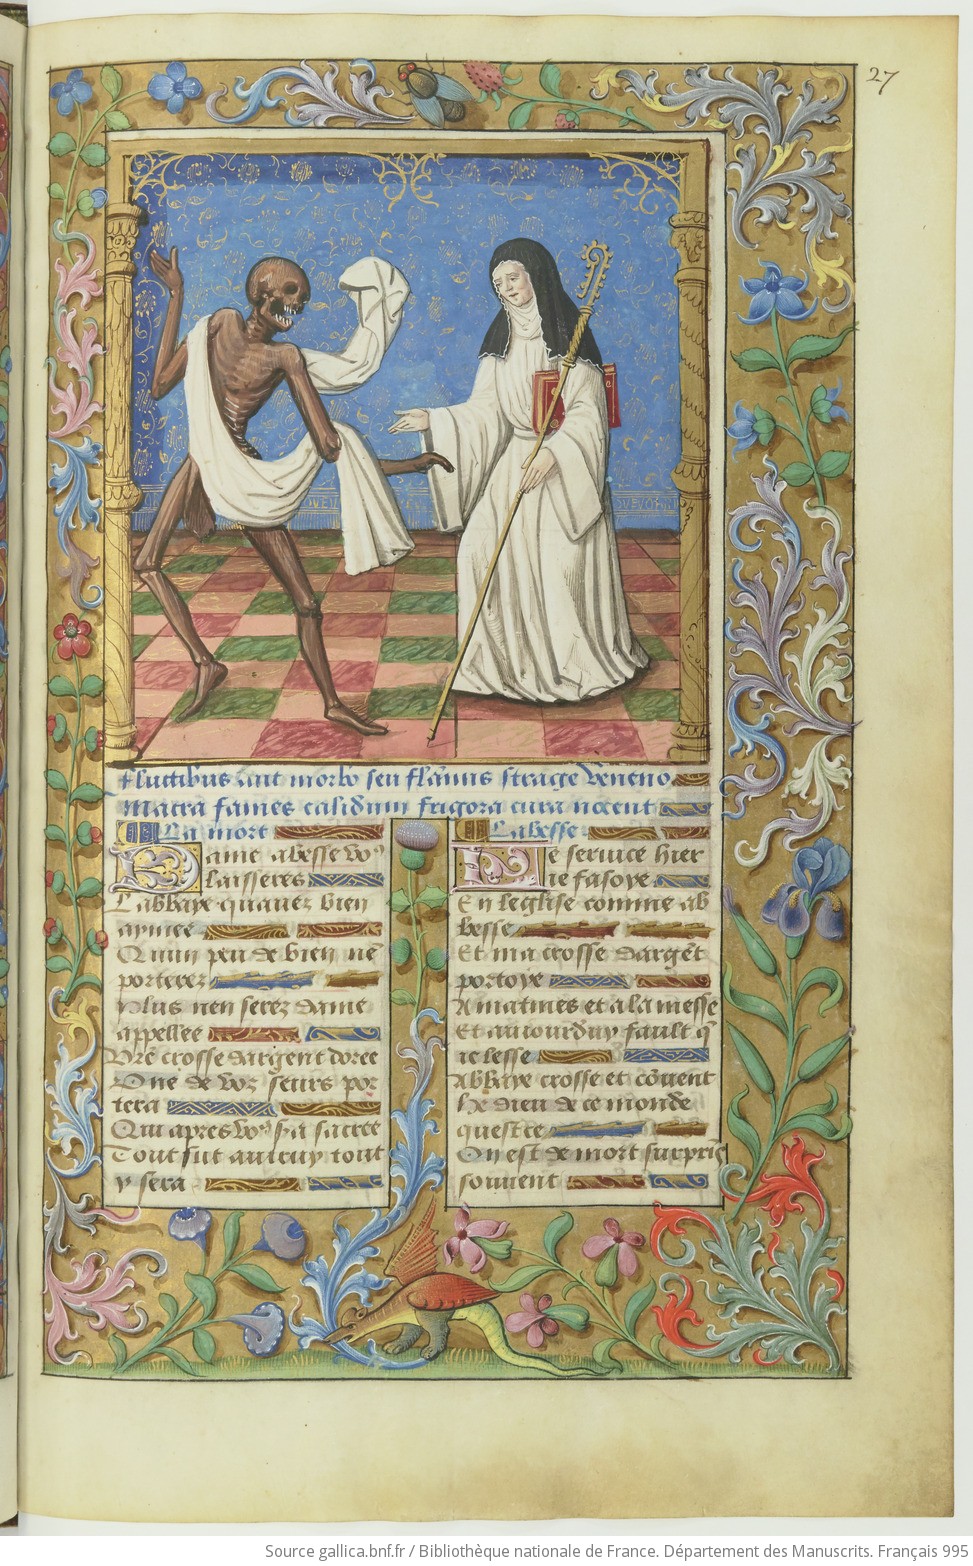 27
Fluctibus aut morbo seu flāmis strage veneno
Macra fames calidum frigora cura nocent
La mort
Dame abesse voꝰ
laisseres
L abbaye quauez bien
aymee
Quun peu de bien nē
porterez
Plus nen serez dame
appellee
Vr̄e crosse dargent doree
Une de voz seurs por
tera
Qui apres voꝰ sa sacree
Tout fut autruy tout
y sera
Labesse
Le seruice hier
ie fasoye
En leglise comme ab
besse
Et ma crosse dargēt
portoye
A matines et a la messe
Et auiourduy fault q̄
ie lesse
Abbaye crosse et cōuent
He dieu de ce monde
quest ce
On est de mort surpris
souuent
Source gallica.bnf.fr / Bibliothèque nationale de France. Département des Manuscrits. Français 995